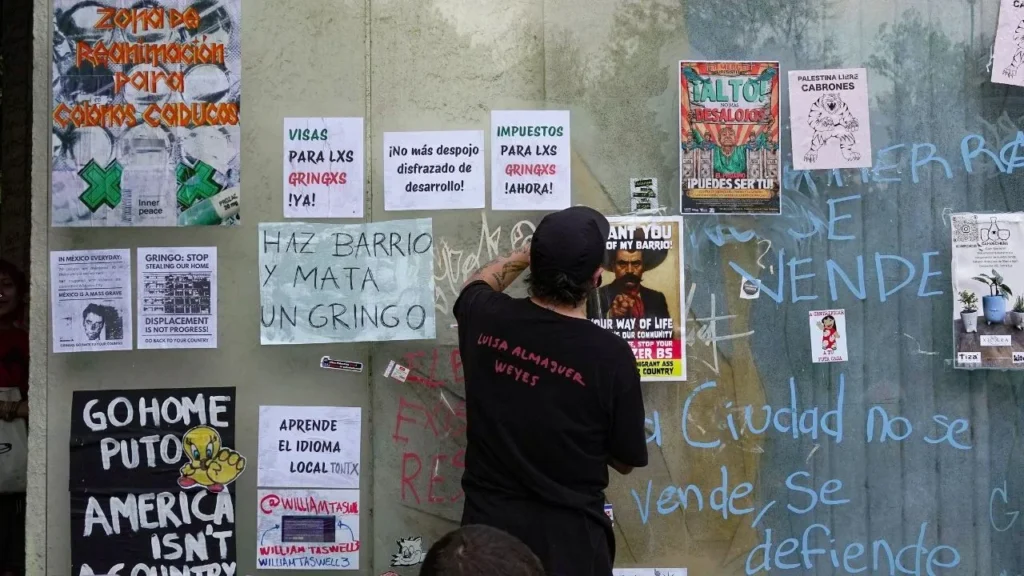 Zona de
Reanimación
para
Caducos
Inner
peace
VISAS
PARA LXS
GRINGXS
!YA!
¡No más despojo
disfrazado de
desarrollo!
IMPUESTOS
PARA LXS
GRINGXS
!AHORA!
¡ALTO!
DESALOJOS
¡PUEDES SER TU!
PALESTINA LIBRE
CABRONES
IN MEXICO EVERYDAY:
MÉXICO IS A MASS GRAVE
GRINGO: STOP
STEALING OUR HOME
DISPLACEMENT
IS NOT PROGRESS!
GO BACK TO YOUR COUNTRY
HAZ BARRIO
Y MATA
UN GRINGO
WANT YOU
OF MY BARRIO!
YOUR WAY OF LIFE
OUR COMMUNITY
STOP YOUR
BS
ASS
COUNTRY
LUISA ALMAGUER
WEYES
SE
VENDE
Tiza
GO HOME
PUTO
AMERICA
ISN'T
A COUNTRY
APRENDE
EL IDIOMA
LOCAL TONTX
WILLIAM TASWELL
WILLIAM TASWELL3
RES
La Ciudad no se
vende, se
defiende